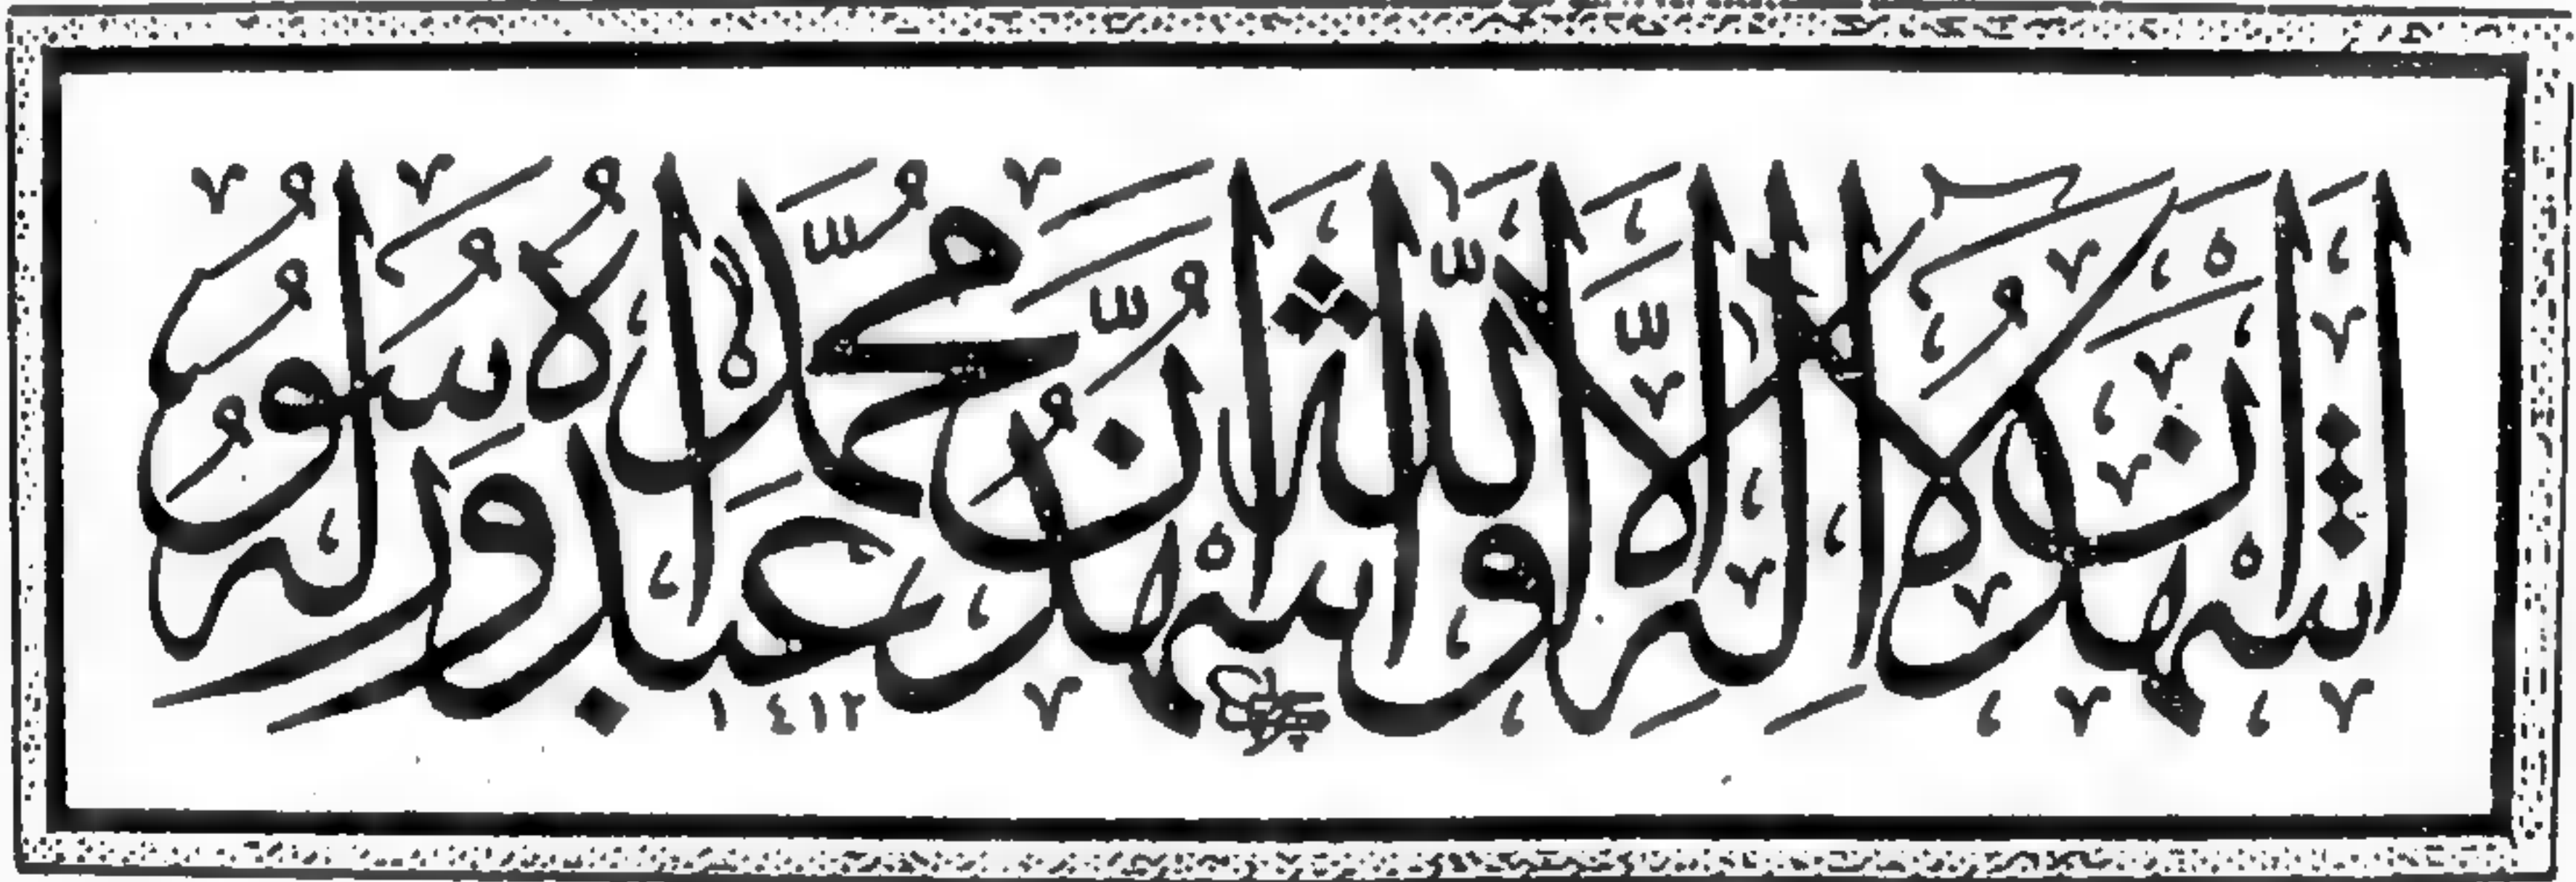 أَشْهَدُ أَنْ لَا إِلَهَ إِلَّا اللَّهُ وَأَشْهَدُ أَنَّ مُحَمَّدًا عَبْدُهُ وَرَسُولُهُ
١٤١٢